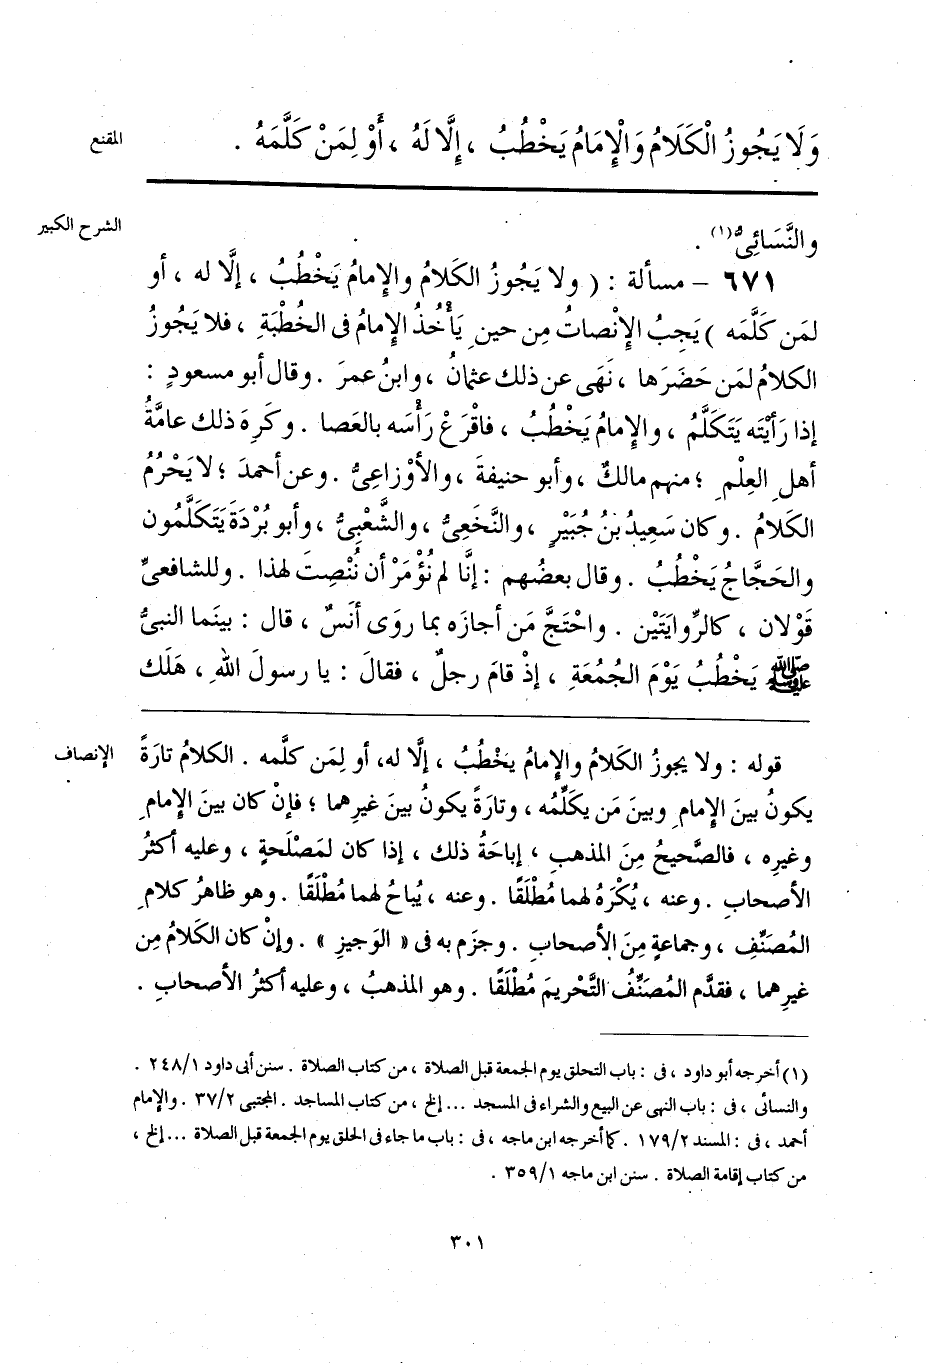 وَلَا يَجُوزُ الْكَلَامُ وَالْإِمَامُ يَخْطُبُ ، إِلَّا لَهُ ، أَوْ لِمَنْ كَلَّمَهُ .
المقنع
الشرح الكبير
والنَّسَائِىُّ(١) .
٦٧١ – مسألة : ( ولا يَجُوزُ الكَلَامُ والإِمامُ يَخْطُبُ ، إلَّا له ، أو
لمَن كَلَّمَه ) يَجِبُ الإِنْصاتُ مِن حينِ يَأْخُذُ الإِمامُ فى الخُطْبَةِ ، فلا يَجُوزُ
الكلامُ لمَن حَضَرَها ، نَهَى عن ذلك عثمانُ ، وابنُ عمرَ . وقال أبو مسعودٍ :
إذا رَأَيْتَه يَتَكَلَّمُ ، والإِمامُ يَخْطُبُ ، فاقْرَعْ رَأْسَه بالعَصا . وكَرِهَ ذلك عامَّةُ
أهلِ العِلْمِ ؛ منهم مالكٌ ، وأبو حنيفةَ ، والأَوْزاعِىُّ . وعن أحمدَ ؛ لا يَحْرُمُ
الكَلامُ . وكان سَعِيدُ بنُ جُبَيْرٍ ، والنَّخَعِىُّ ، والشَّعْبِىُّ ، وأبو بُرْدَةَ يَتَكَلَّمُون
والحَجَّاجُ يَخْطُبُ . وقال بعضُهم : إنَّا لم نُؤْمَرْ أن نُنْصِتَ لهذا . وللشافعىِّ
قَوْلان ، كالرِّوايَتَيْن . واحْتَجَّ مَن أجازَه بما روَى أنَسٌ ، قال : بينَما النبىُّ
ﷺ يَخْطُبُ يَوْمَ الجُمُعَةِ ، إذْ قامَ رجلٌ ، فقالَ : يا رسولَ اللهِ ، هَلَك
الإنصاف
قوله : ولا يجوزُ الكَلامُ والإِمامُ يخْطُبُ ، إلَّا له، أو لِمَن كلَّمه . الكلامُ تارَةً
يكونُ بينَ الإِمامِ وبينَ مَن يكَلِّمُه ، وتارَةً يكونُ بينَ غيرِهما ؛ فإنْ كان بينَ الإِمامِ
وغيرِه ، فالصَّحيحُ مِنَ المذهبِ ، إباحَةُ ذلك ، إذا كان لمَصْلَحةٍ ، وعليه أكثرُ
الأصحابِ . وعنه ، يُكْرَهُ لهما مُطْلَقًا . وعنه ، يُباحُ لهما مُطْلَقًا . وهو ظاهرُ كلامِ
المُصَنِّفِ ، وجماعةٍ مِنَ الأصحابِ . وجزَم به فى « الوَجيزِ » . وإنْ كان الكَلامُ مِن
غيرِهما ، فقدَّم المُصَنِّفُ التَّحْريمَ مُطْلَقًا . وهو المذهبُ ، وعليه أكثرُ الأصحابِ .
(١) أخرجه أبو داود ، فى : باب التحلق يوم الجمعة قبل الصلاة ، من كتاب الصلاة . سنن أبى داود ٢٤٨/١ .
والنسائى ، فى : باب النهى عن البيع والشراء فى المسجد ... إلخ ، من كتاب المساجد . المجتبى ٣٧/٢ . والإمام
أحمد ، فى : المسند ١٧٩/٢ . كما أخرجه ابن ماجه ، فى : باب ما جاء فى الحلق يوم الجمعة قبل الصلاة ... إلخ ،
من كتاب إقامة الصلاة . سنن ابن ماجه ٣٥٩/١ .
٣٠١